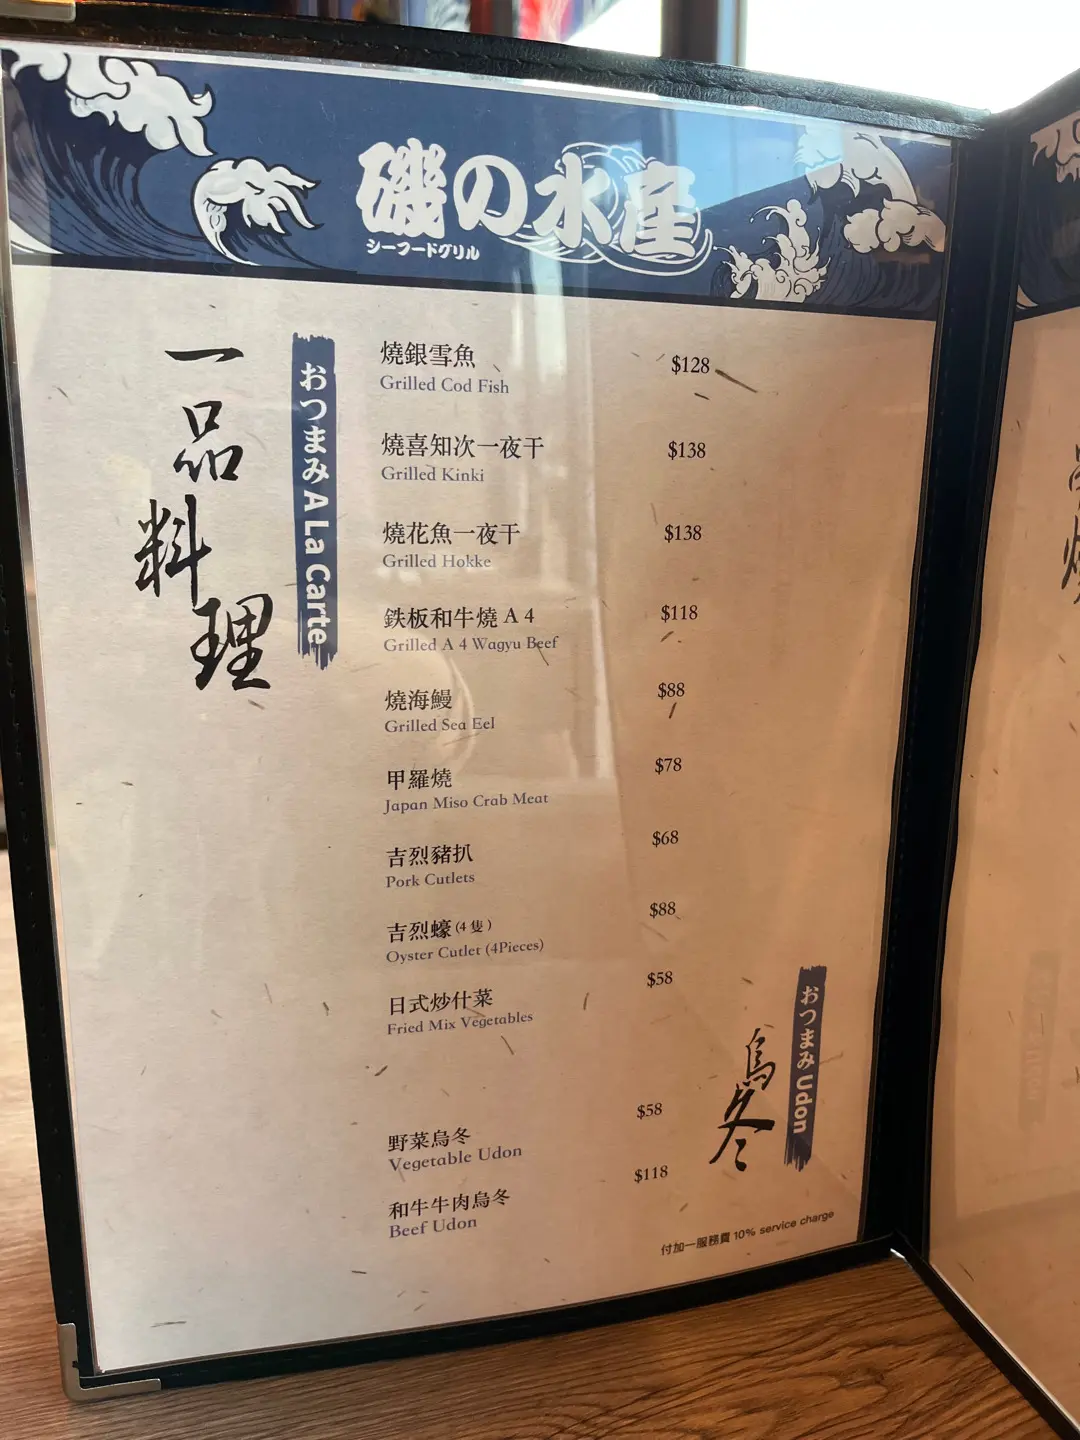 磯の水産
シーフードグリル
一品料理
おつまみ A La Carte
燒銀雪魚 $128
Grilled Cod Fish
燒喜知次一夜干 $138
Grilled Kinki
燒花魚一夜干 $138
Grilled Hokke
鉄板和牛燒 A 4 $118
Grilled A 4 Wagyu Beef
燒海鰻 $88
Grilled Sea Eel
甲羅燒 $78
Japan Miso Crab Meat
吉烈豬扒 $68
Pork Cutlets
吉烈蠔(4 隻) $88
Oyster Cutlet (4Pieces)
日式炒什菜 $58
Fried Mix Vegetables
烏冬
おつまみ Udon
野菜烏冬 $58
Vegetable Udon
和牛牛肉烏冬 $118
Beef Udon
付加一服務費 10% service charge